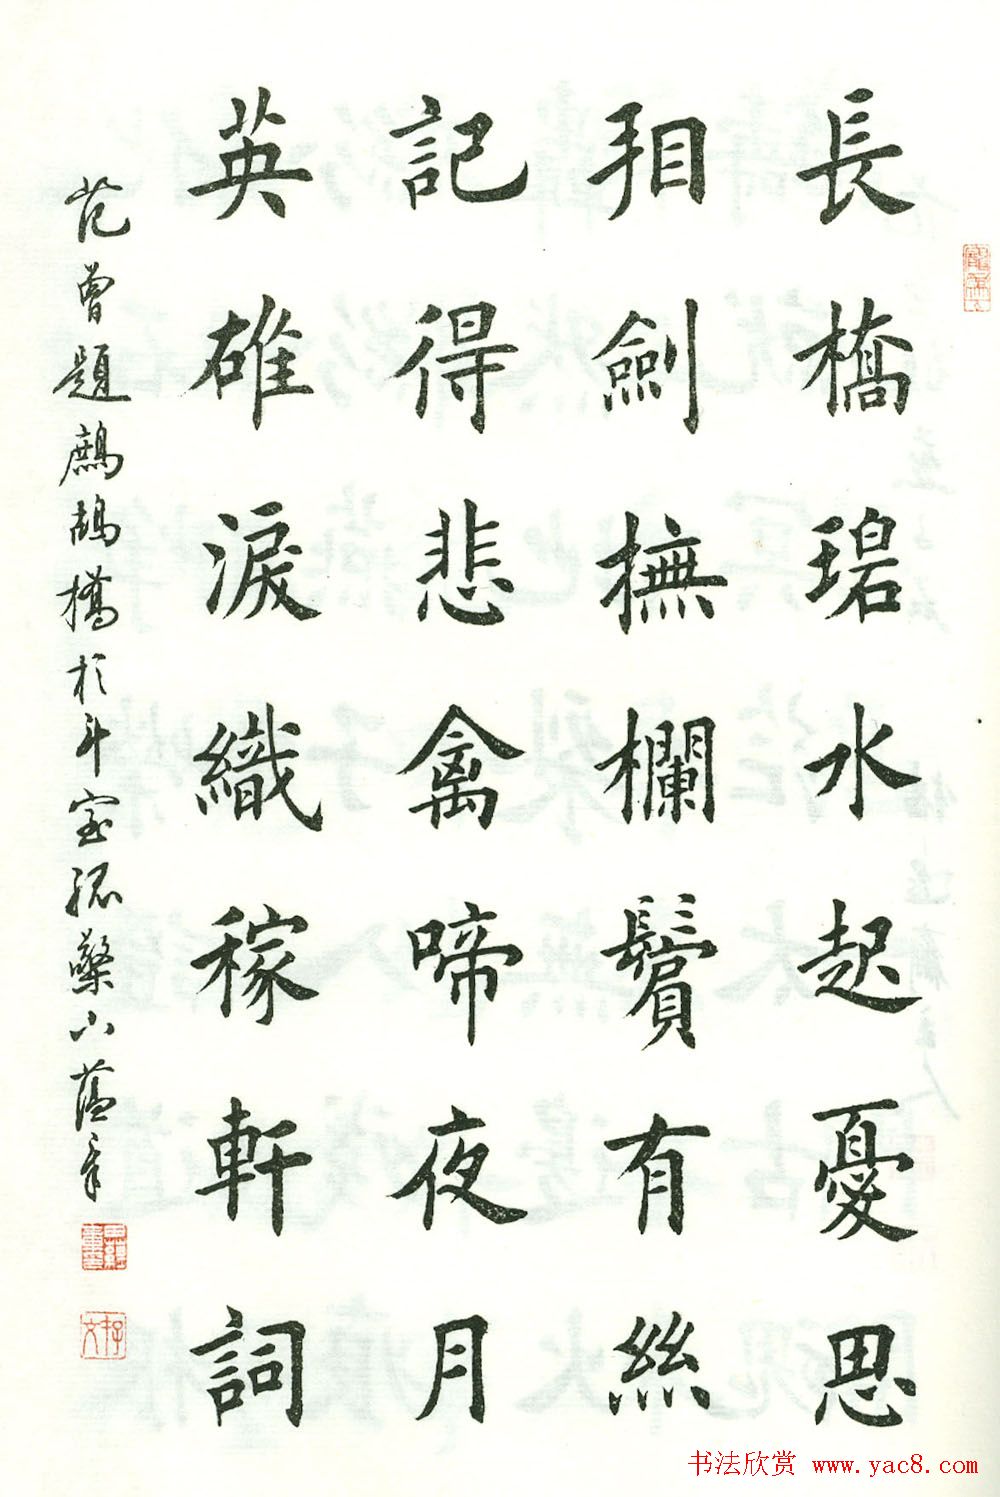 長橋碧水起憂思
劍撫欄鬢有絲
記得悲禽啼夜月
英雄淚織稼軒詞
范曾題鷓鴣橋於斗室孤檠下蘊章
书法欣赏 www.yac8.com